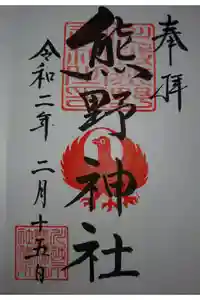 奉拝
熊野神社
令和二年 二月十五日